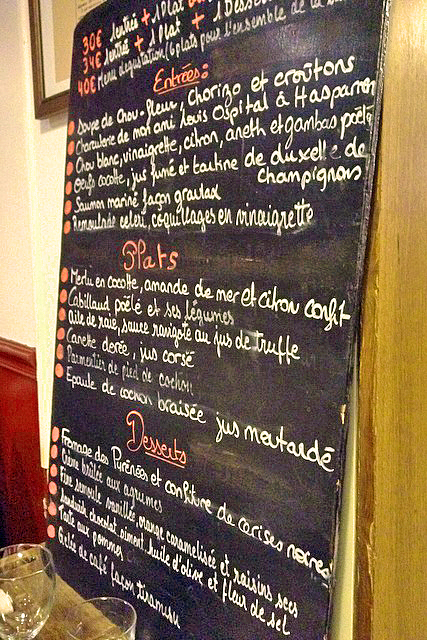 30€ 1 entrée + 1 Plat
34€ 1 entrée + 1 Plat + 1 Dessert
40€ Menu dégustation (6 plats pour l'ensemble de la
Entrées:
Soupe de Chou-fleur, Chorizo et croûtons
Charcuterie de mon ami Louis Ospital à Hasparren
Chou blanc, vinaigrette, citron, aneth et gambas poêlé
Oeufs cocotte, jus fumé et tartine de duxelle de
champignons
Saumon mariné façon gravlax
Remoulade celeri, coquillages en vinaigrette
Plats
Merlu en cocotte, amande de mer et citron confit
Cabillaud poêlé et ses légumes
Aile de raie, sauce ravigote au jus de truffe
Canette dorée, jus corsé
Parmentier de pied de cochon
Epaule de cochon braisée jus moutardé
Desserts
Fromage des Pyrénées et confiture de cerises noires
Crème brûlée aux agrumes
Fine semoule vanillée, orange caramelisée et raisins secs
Sandwich chocolat, piment, huile d'olive et fleur de sel
Tarte aux pommes
Gelée de café façon tiramisu